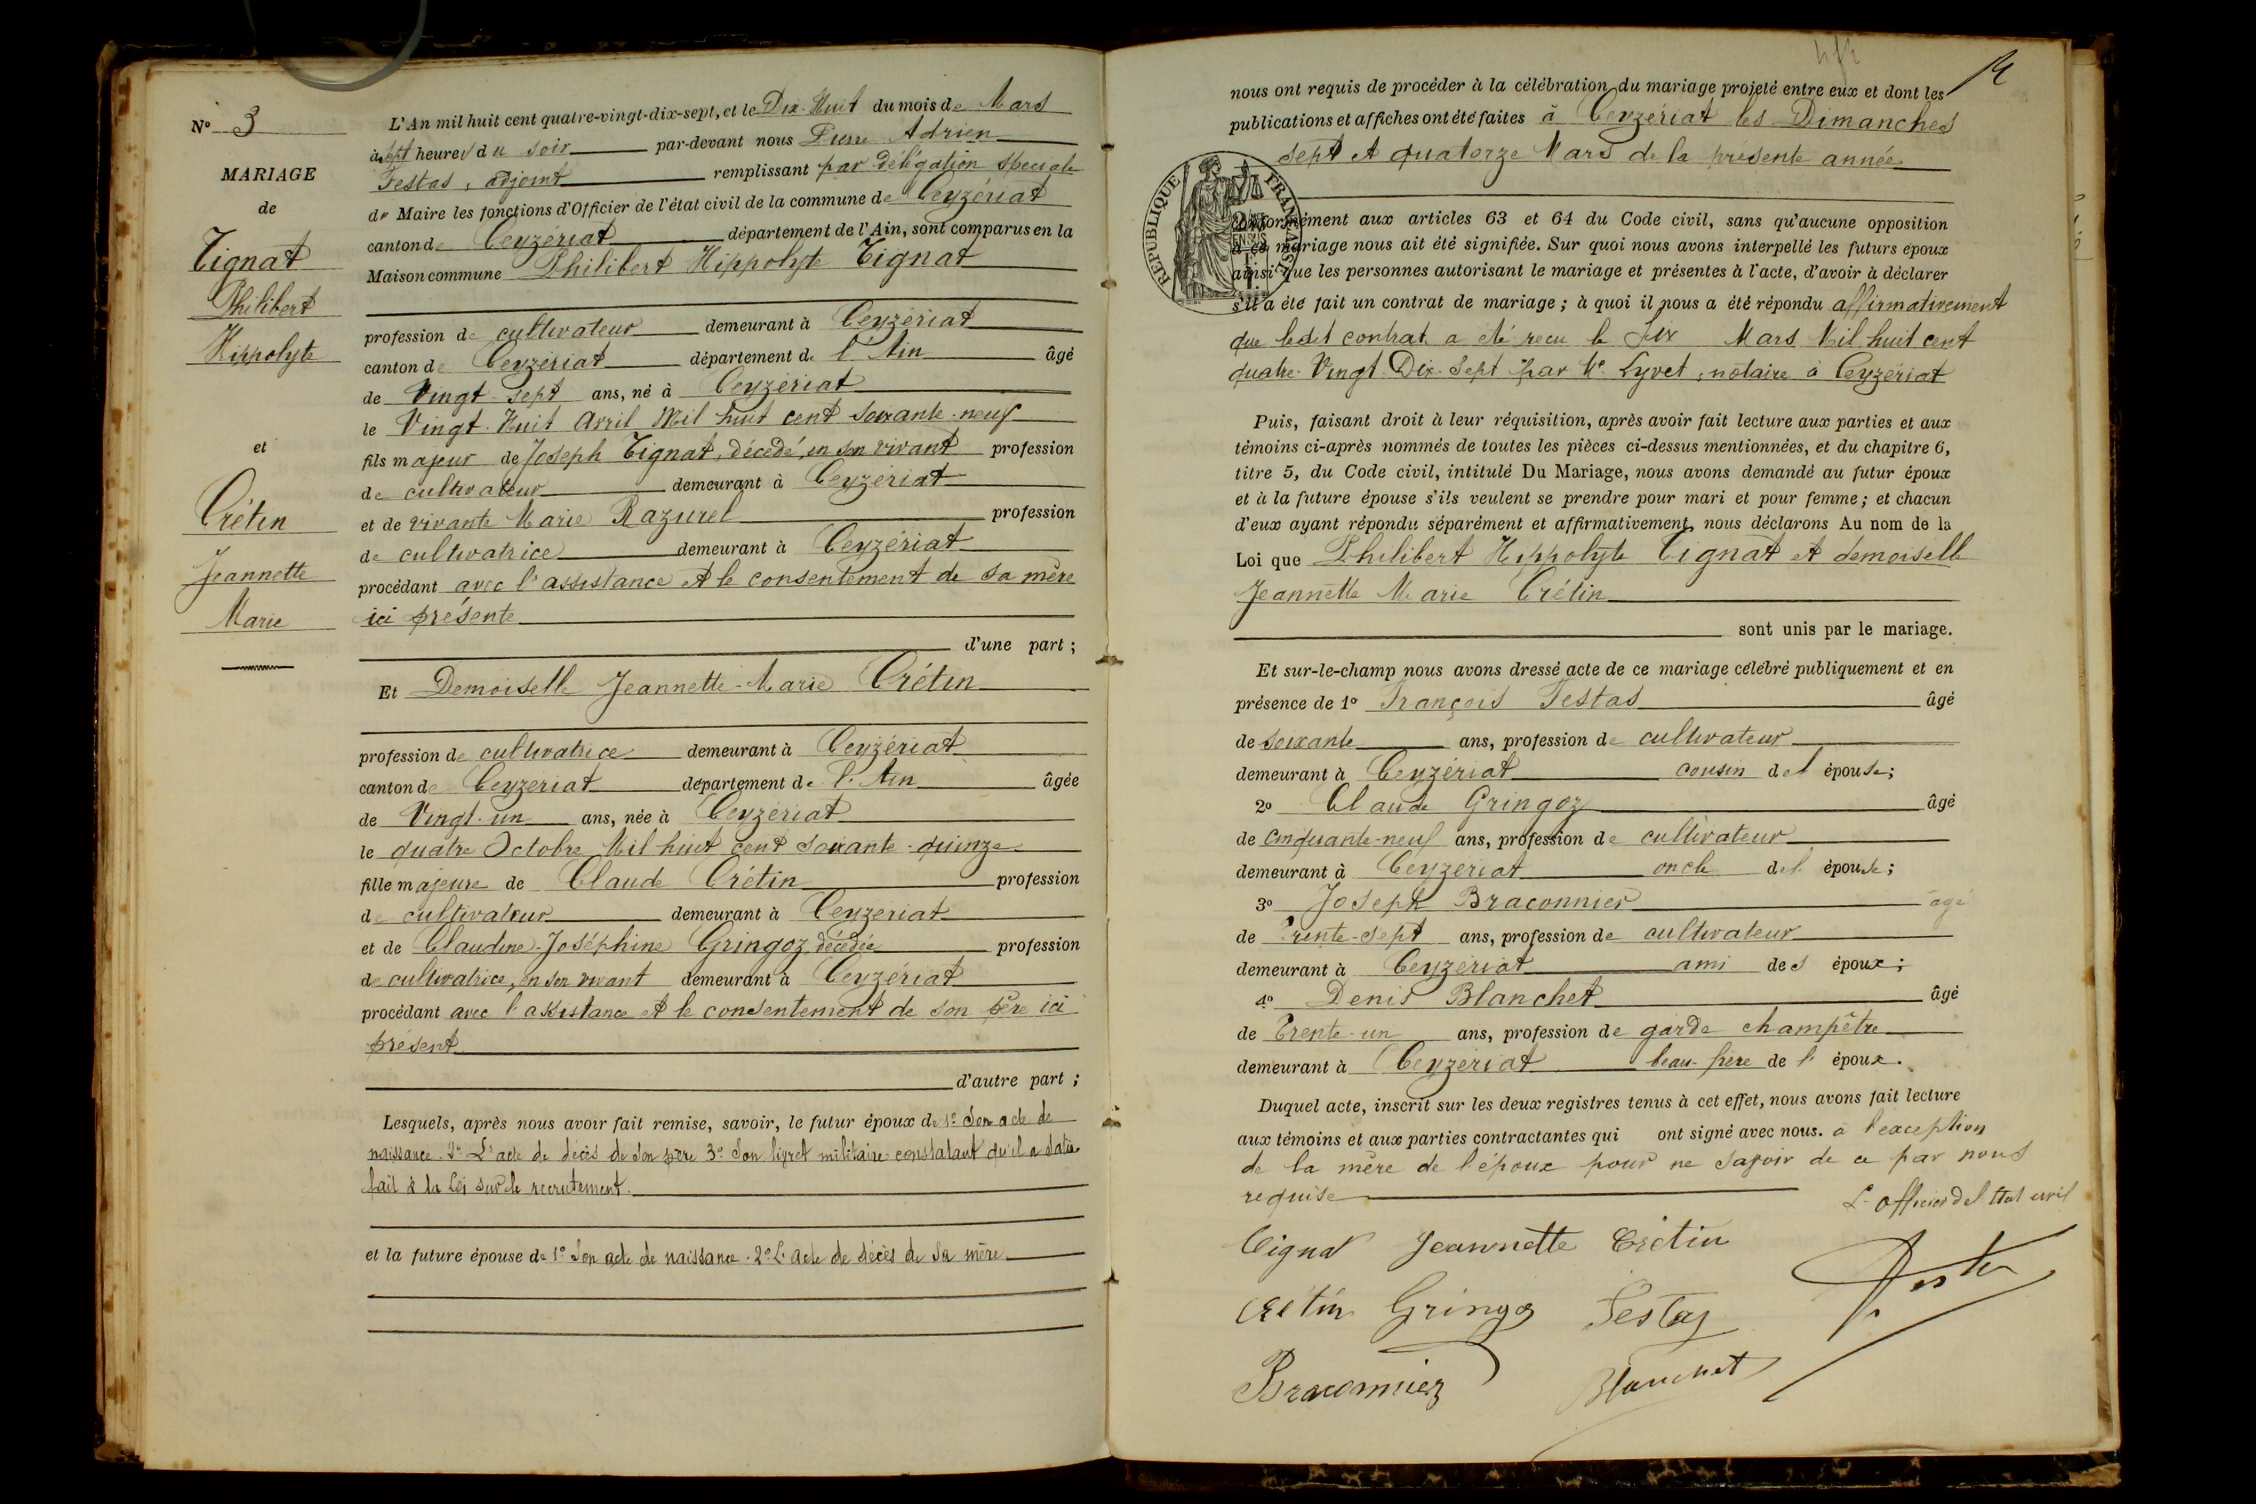 N° 3
MARIAGE
de
Tignat
Philibert
Hippolyte
et
Crétin
Jeannette
Marie
L'An mil huit cent quatre-vingt-dix-sept, et le Dix-Huit du mois de Mars
à sept heures du soir par-devant nous Pierre Adrien
Festas, adjoint remplissant par délégation spéciale
du Maire les fonctions d'Officier de l'état civil de la commune de Ceyzériat
canton de Ceyzériat département de l'Ain, sont comparus en la
Maison commune Philibert Hippolyte Tignat
profession de cultivateur demeurant à Ceyzériat
canton de Ceyzériat département de l'Ain âgé
de Vingt-sept ans, né à Ceyzériat
le Vingt-Huit Avril Mil huit cent soixante-neuf
fils majeur de Joseph Tignat, décédé, en son vivant profession
de cultivateur demeurant à Ceyzériat
et de vivante Marie Razurel profession
de cultivatrice demeurant à Ceyzériat
procédant avec l'assistance et le consentement de sa mère
ici présente
d'une part ;
Et Demoiselle Jeannette-Marie Crétin
profession de cultivatrice demeurant à Ceyzériat
canton de Ceyzériat département de l'Ain âgée
de Vingt-un ans, née à Ceyzériat
le quatre Octobre Mil huit cent soixante-quinze
fille majeure de Claude Crétin profession
de cultivateur demeurant à Ceyzériat
et de Claudine-Joséphine Gringoz, décédée profession
de cultivatrice, en son vivant demeurant à Ceyzériat
procédant avec l'assistance et le consentement de son père ici
présent
d'autre part ;
Lesquels, après nous avoir fait remise, savoir, le futur époux de 1° Son acte de
naissance. 2° L'acte de décès de son père 3° Son livret militaire constatant qu'il a satis-
fait à la Loi sur le recrutement.
et la future épouse de 1° Son acte de naissance. 2° L'acte de décès de sa mère
nous ont requis de procéder à la célébration du mariage projeté entre eux et dont les
publications et affiches ont été faites à Ceyzériat les Dimanches
sept et quatorze Mars de la présente année
RÉPUBLIQUE FRANÇAISE
Conformément aux articles 63 et 64 du Code civil, sans qu'aucune opposition
à ce mariage nous ait été signifiée. Sur quoi nous avons interpellé les futurs époux
ainsi que les personnes autorisant le mariage et présentes à l'acte, d'avoir à déclarer
s'il a été fait un contrat de mariage ; à quoi il nous a été répondu affirmativement
que ledit contrat a été reçu le Mars Mil huit cent
quatre-Vingt-Dix-Sept par Me Lyvet, notaire à Ceyzériat
Puis, faisant droit à leur réquisition, après avoir fait lecture aux parties et aux
témoins ci-après nommés de toutes les pièces ci-dessus mentionnées, et du chapitre 6,
titre 5, du Code civil, intitulé Du Mariage, nous avons demandé au futur époux
et à la future épouse s'ils veulent se prendre pour mari et pour femme ; et chacun
d'eux ayant répondu séparément et affirmativement, nous déclarons Au nom de la
Loi que Philibert Hippolyte Tignat et demoiselle
Jeannette Marie Crétin
sont unis par le mariage.
Et sur-le-champ nous avons dressé acte de ce mariage célébré publiquement et en
présence de 1° François Festas âgé
de soixante ans, profession de cultivateur
demeurant à Ceyzériat cousin de l'épouse ;
2° Claude Gringoz âgé
de cinquante-neuf ans, profession de cultivateur
demeurant à Ceyzériat oncle de l'épouse ;
3° Joseph Braconnier âgé
de Trente-sept ans, profession de cultivateur
demeurant à Ceyzériat ami des époux ;
4° Denis Blanchet âgé
de Trente-un ans, profession de garde champêtre
demeurant à Ceyzériat beau-frère de l'époux.
Duquel acte, inscrit sur les deux registres tenus à cet effet, nous avons fait lecture
aux témoins et aux parties contractantes qui ont signé avec nous. à l'exception
de la mère de l'époux pour ne savoir de ce par nous
requise
L'officier de l'Etat civil
Tignat Jeannette Crétin
crétin Gringoz Festas
Braconnier Blanchet